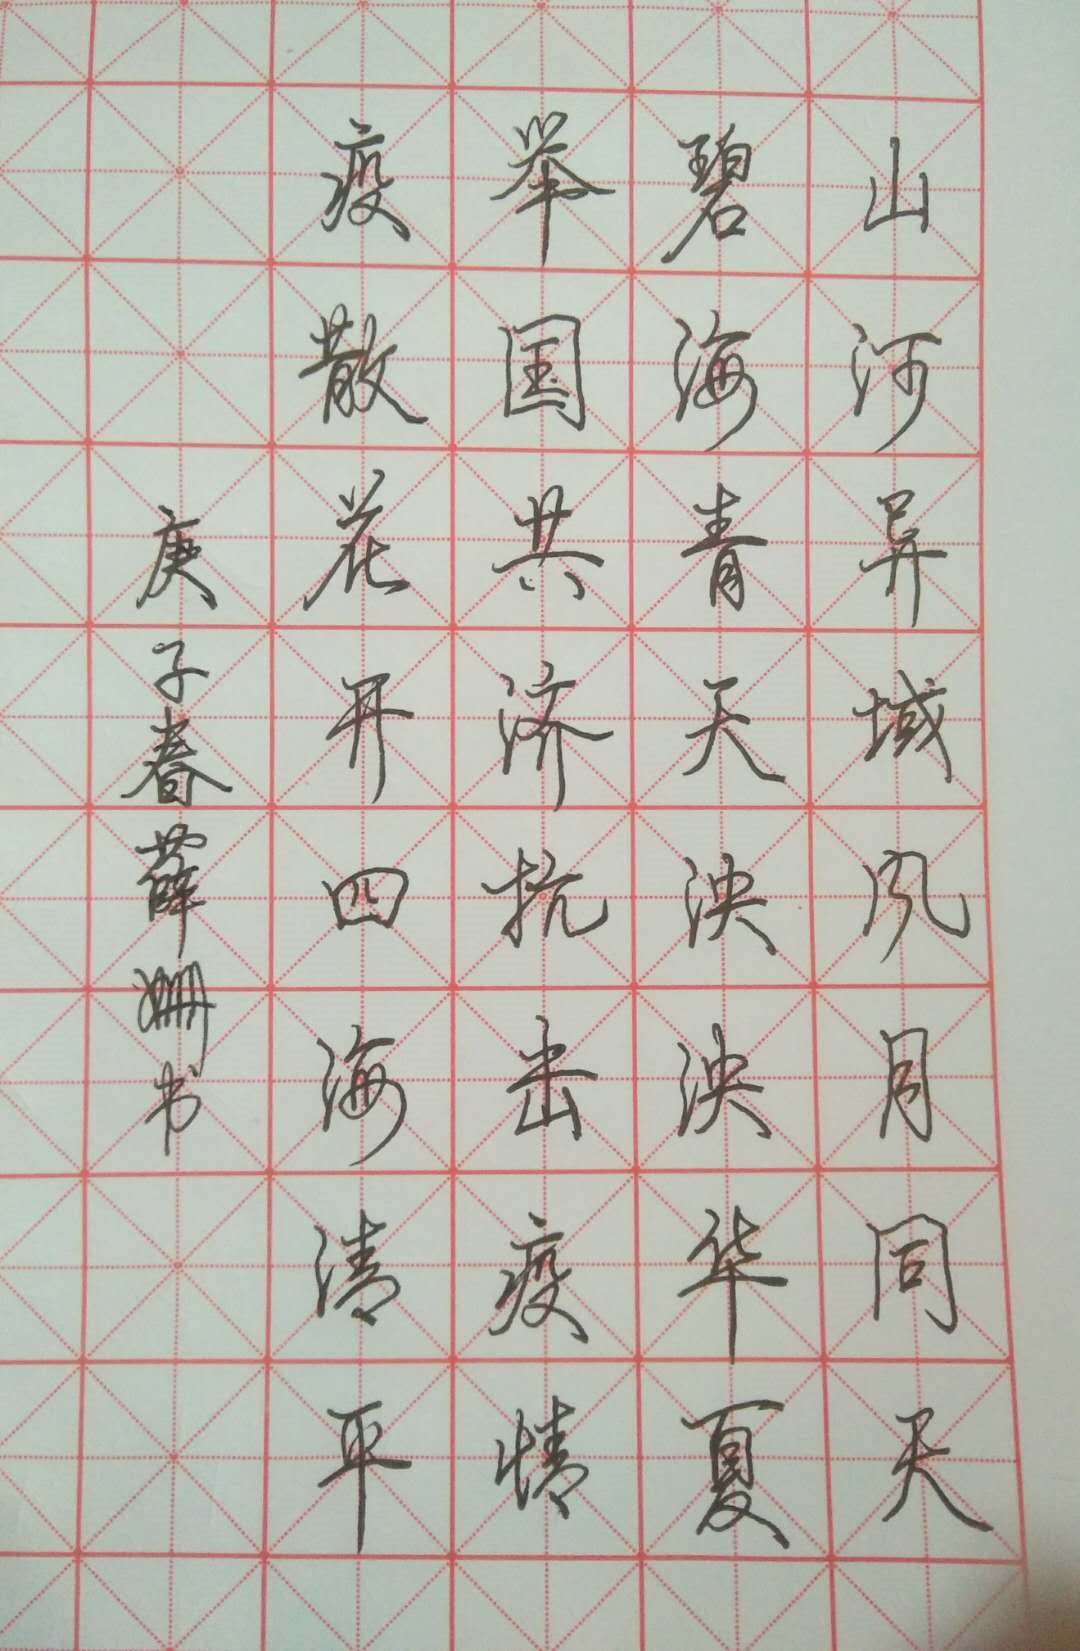 山河异域风月同天
碧海青天泱泱华夏
举国共济抗击疫情
疫散花开四海清平
庚子春薛姗书